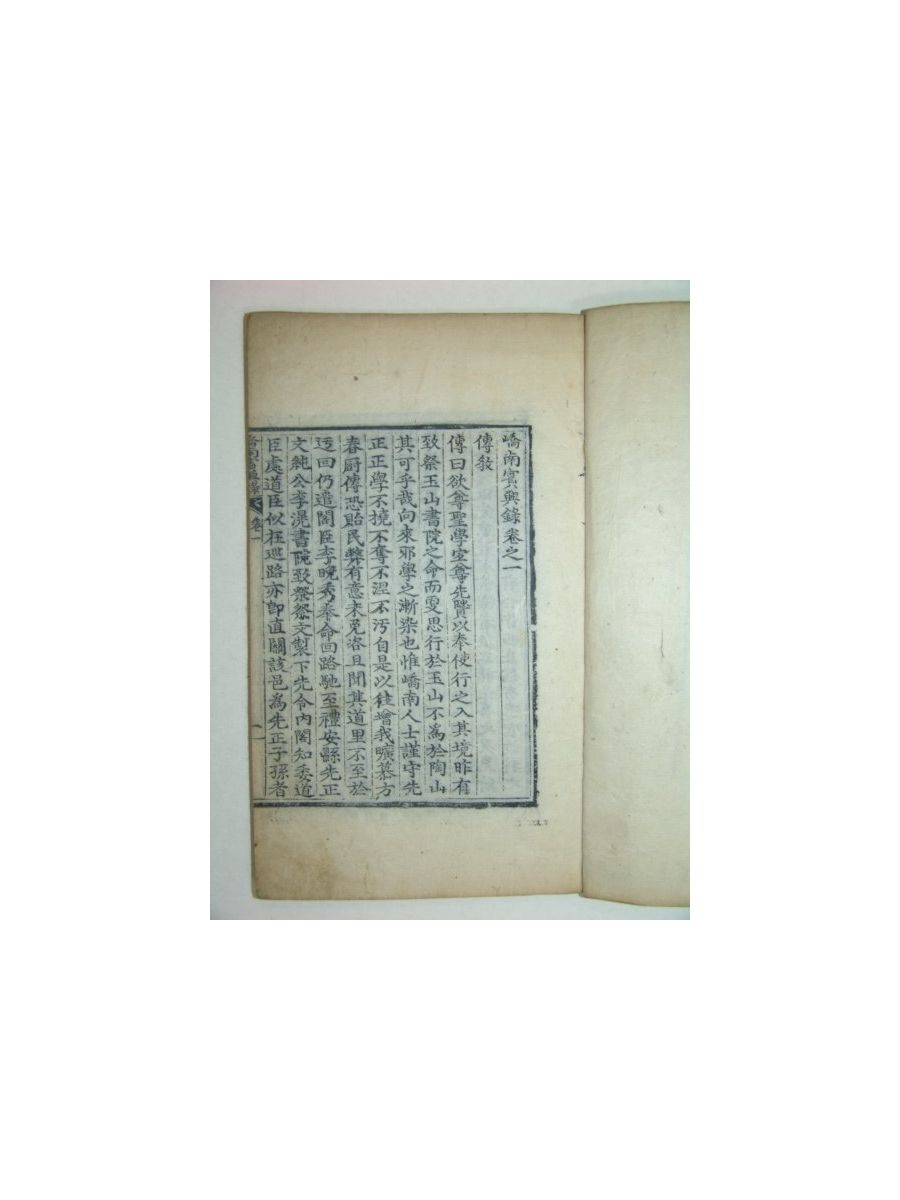 嶠南賓興錄卷之一
傳教
傳曰欲尊聖學宜尊先賢以奉使行之入其境昨有
致祭玉山書院之命而更思行於玉山不爲於陶山
其可乎哉向來邪學之漸染也惟嶠南人士謹守先
正正學不撓不奪不涅不汚自是以往增我曠慕方
春厨傳恐貽民弊有意未免洛且聞其道里不至於
迂回仍遣閣臣李晚秀奉命回路馳至禮安縣先正
文純公李滉書院致祭祭文製下先令內閣知委道
臣處道臣似在巡路亦卽直關該邑爲先正子孫者
卷一
一